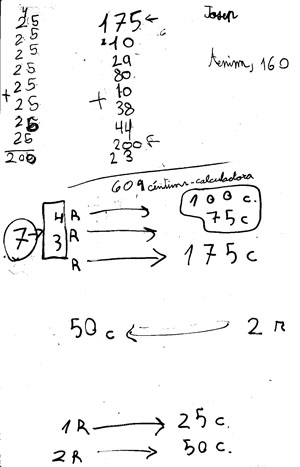 4
25
25
25
25
25
+ 25
25
25
200
175 ←
210
29
80
10
+ 38
44
200 ←
23
609 cèntims-calculadora
Josep
Tenim, 160
7 → 4 R → 100 c.
3 R → 75 c
R → 175 c
50 c ← 2 R
1 R → 25 c.
2 R → 50 c.